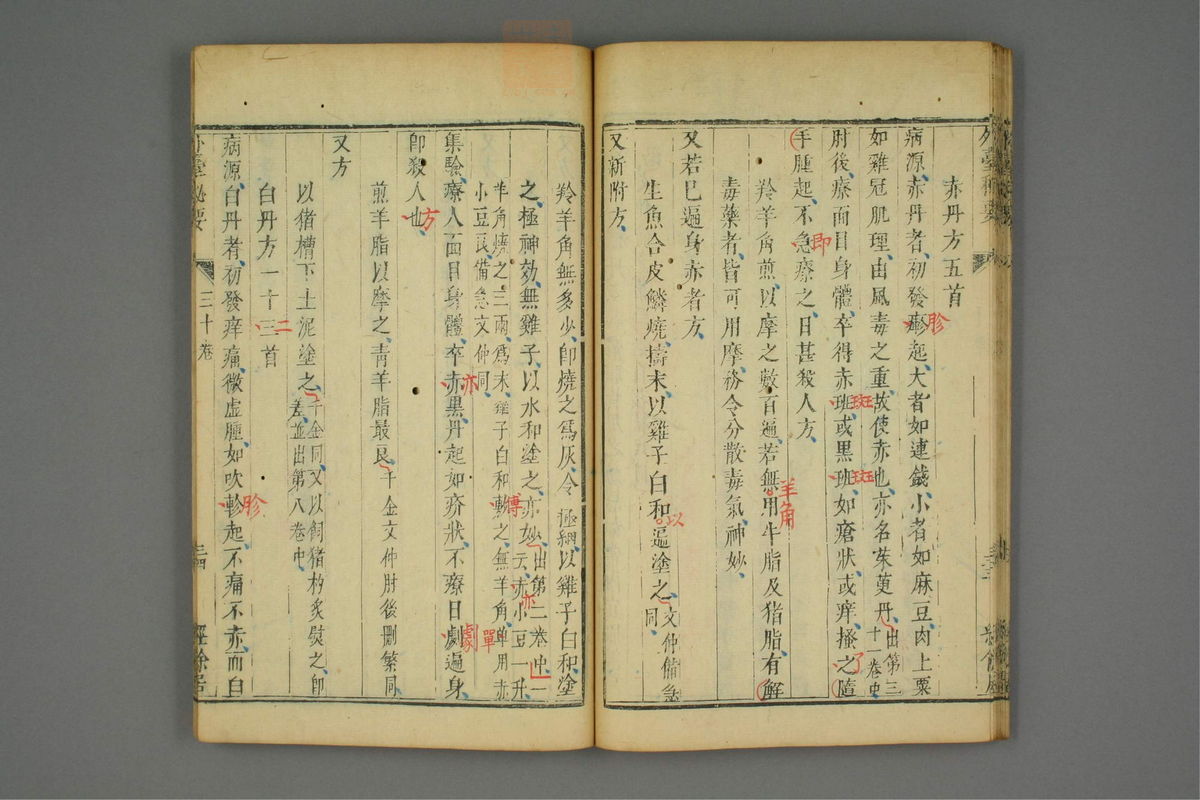 赤丹方五首
病源赤丹者初發㾦起大者如連錢小者如麻豆肉上粟
胗
如雞冠肌理由風毒之重故使赤也亦名茱萸丹出第三
十一卷中
肘後療面目身體卒得赤班或黑班如瘡狀或痒搔之隨
斑
斑
了
手腫起不急療之日甚殺人方
即
羚羊角煎以摩之數百遍若無用牛脂及猪脂有解
羊角
毒藥者皆可用摩務令分散毒氣神妙
又若已遍身赤者方
生魚合皮鱗燒擣末以雞子白和遍塗之文仲備急
同
以
又新附方
羚羊角無多少即燒之為灰令極細以雞子白和塗
之極神効無雞子以水和塗之亦妙出第二卷中一
云赤小豆一升
亦
羊角燒之三兩為末雞子白和傅之無羊角單用赤
小豆良備急文仲同
傅
單
集驗療人面目身體卒赤黑丹起如疥狀不療日劇遍身
亦
劇
即殺人也
方
煎羊脂以摩之青羊脂最良千金文仲肘後刪繁同
又方
以猪槽下土泥塗之千金同又以飼猪杓炙熨之即
差並出第八卷中
白丹方一十三首
二
病源白丹者初發痒痛微虛腫如吹軫起不痛不赤而白
胗
外臺秘要
三十卷
三四
經餘居